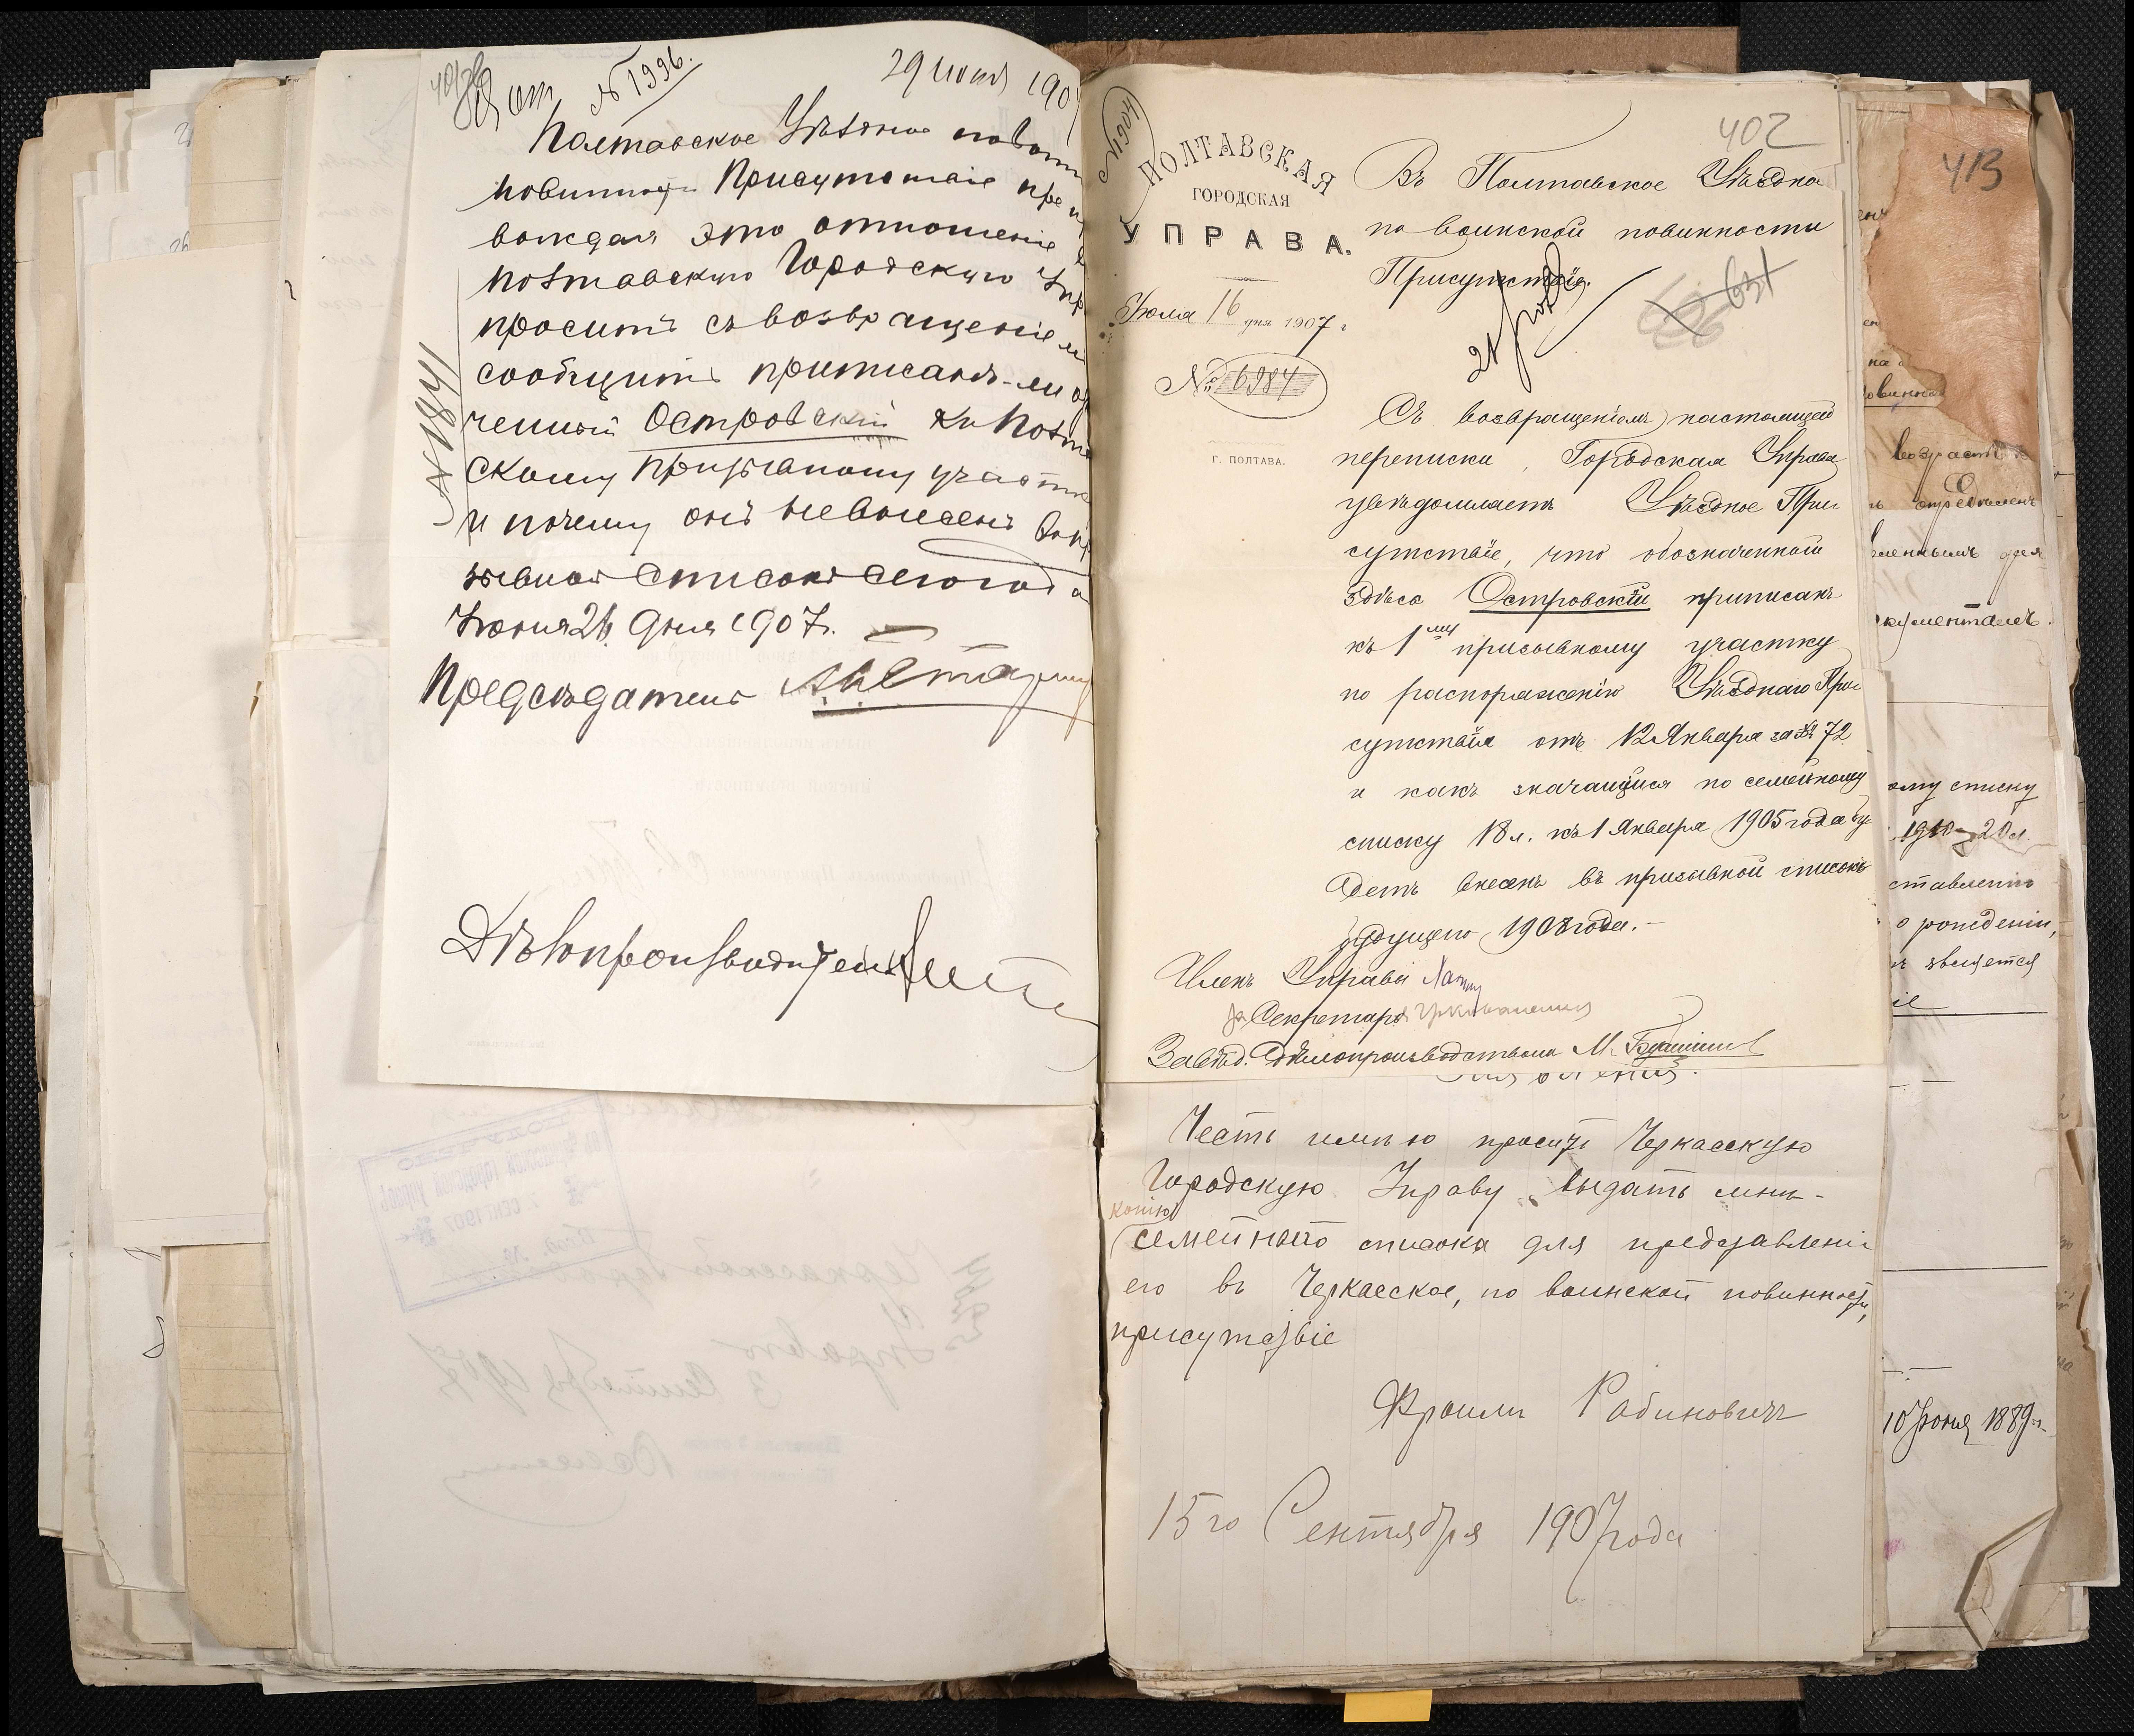 № 1996.
29 июня 190
Полтавское Уѣздное по воин
повинности Присутствіе препро
вождая это отношеніе
Полтавскую Городскую Упр
проситъ съ возвращеніем
сообщить приписанъ-ли озна
ченный Островскій къ Полта
скому призывному участку
и почему онъ не внесенъ въ при
зывной списокъ сего года
Іюня 26 дня 1907 г.
Предсѣдатель
Дѣлопроизводитель
№ 1841
№ 1904
ПОЛТАВСКАЯ
ГОРОДСКАЯ
УПРАВА.
Іюля 16 дня 1907 г
№ 6984
Г. ПОЛТАВА.
402
Въ Полтавское Уѣздно
по воинской повинности
Присутствіе.
Съ возвращеніемъ настоящей
переписки, Городская Управа
увѣдомляетъ Уѣздное При
сутствіе, что обозначенный
здѣсь Островскій приписанъ
къ 1му призывному участку
по распоряженію Уѣзднаго При
сутствія отъ 12 Января за № 72
и какъ значащійся по семейному
списку 18 л. къ 1 Января 1905 года бу
детъ внесенъ въ призывной списокъ
будущего 1908 года.-
Членъ Управы
За Секретаря
Завѣд. Дѣлопроизводствомъ М.
Честь имѣю просить Черкасскую
Городскую Управу выдать мнѣ-
копію
семейнаго списка для представленія
его въ Черкасское, по воинской повинности,
присутствіе
Фроимъ Рабиновичъ
15го Сентября 1907 года
413
возраст
опредѣленъ
документамъ.
ому списку
1910 20 л.
ставленію
о рожденіи,
10 Іюня 1889 г.